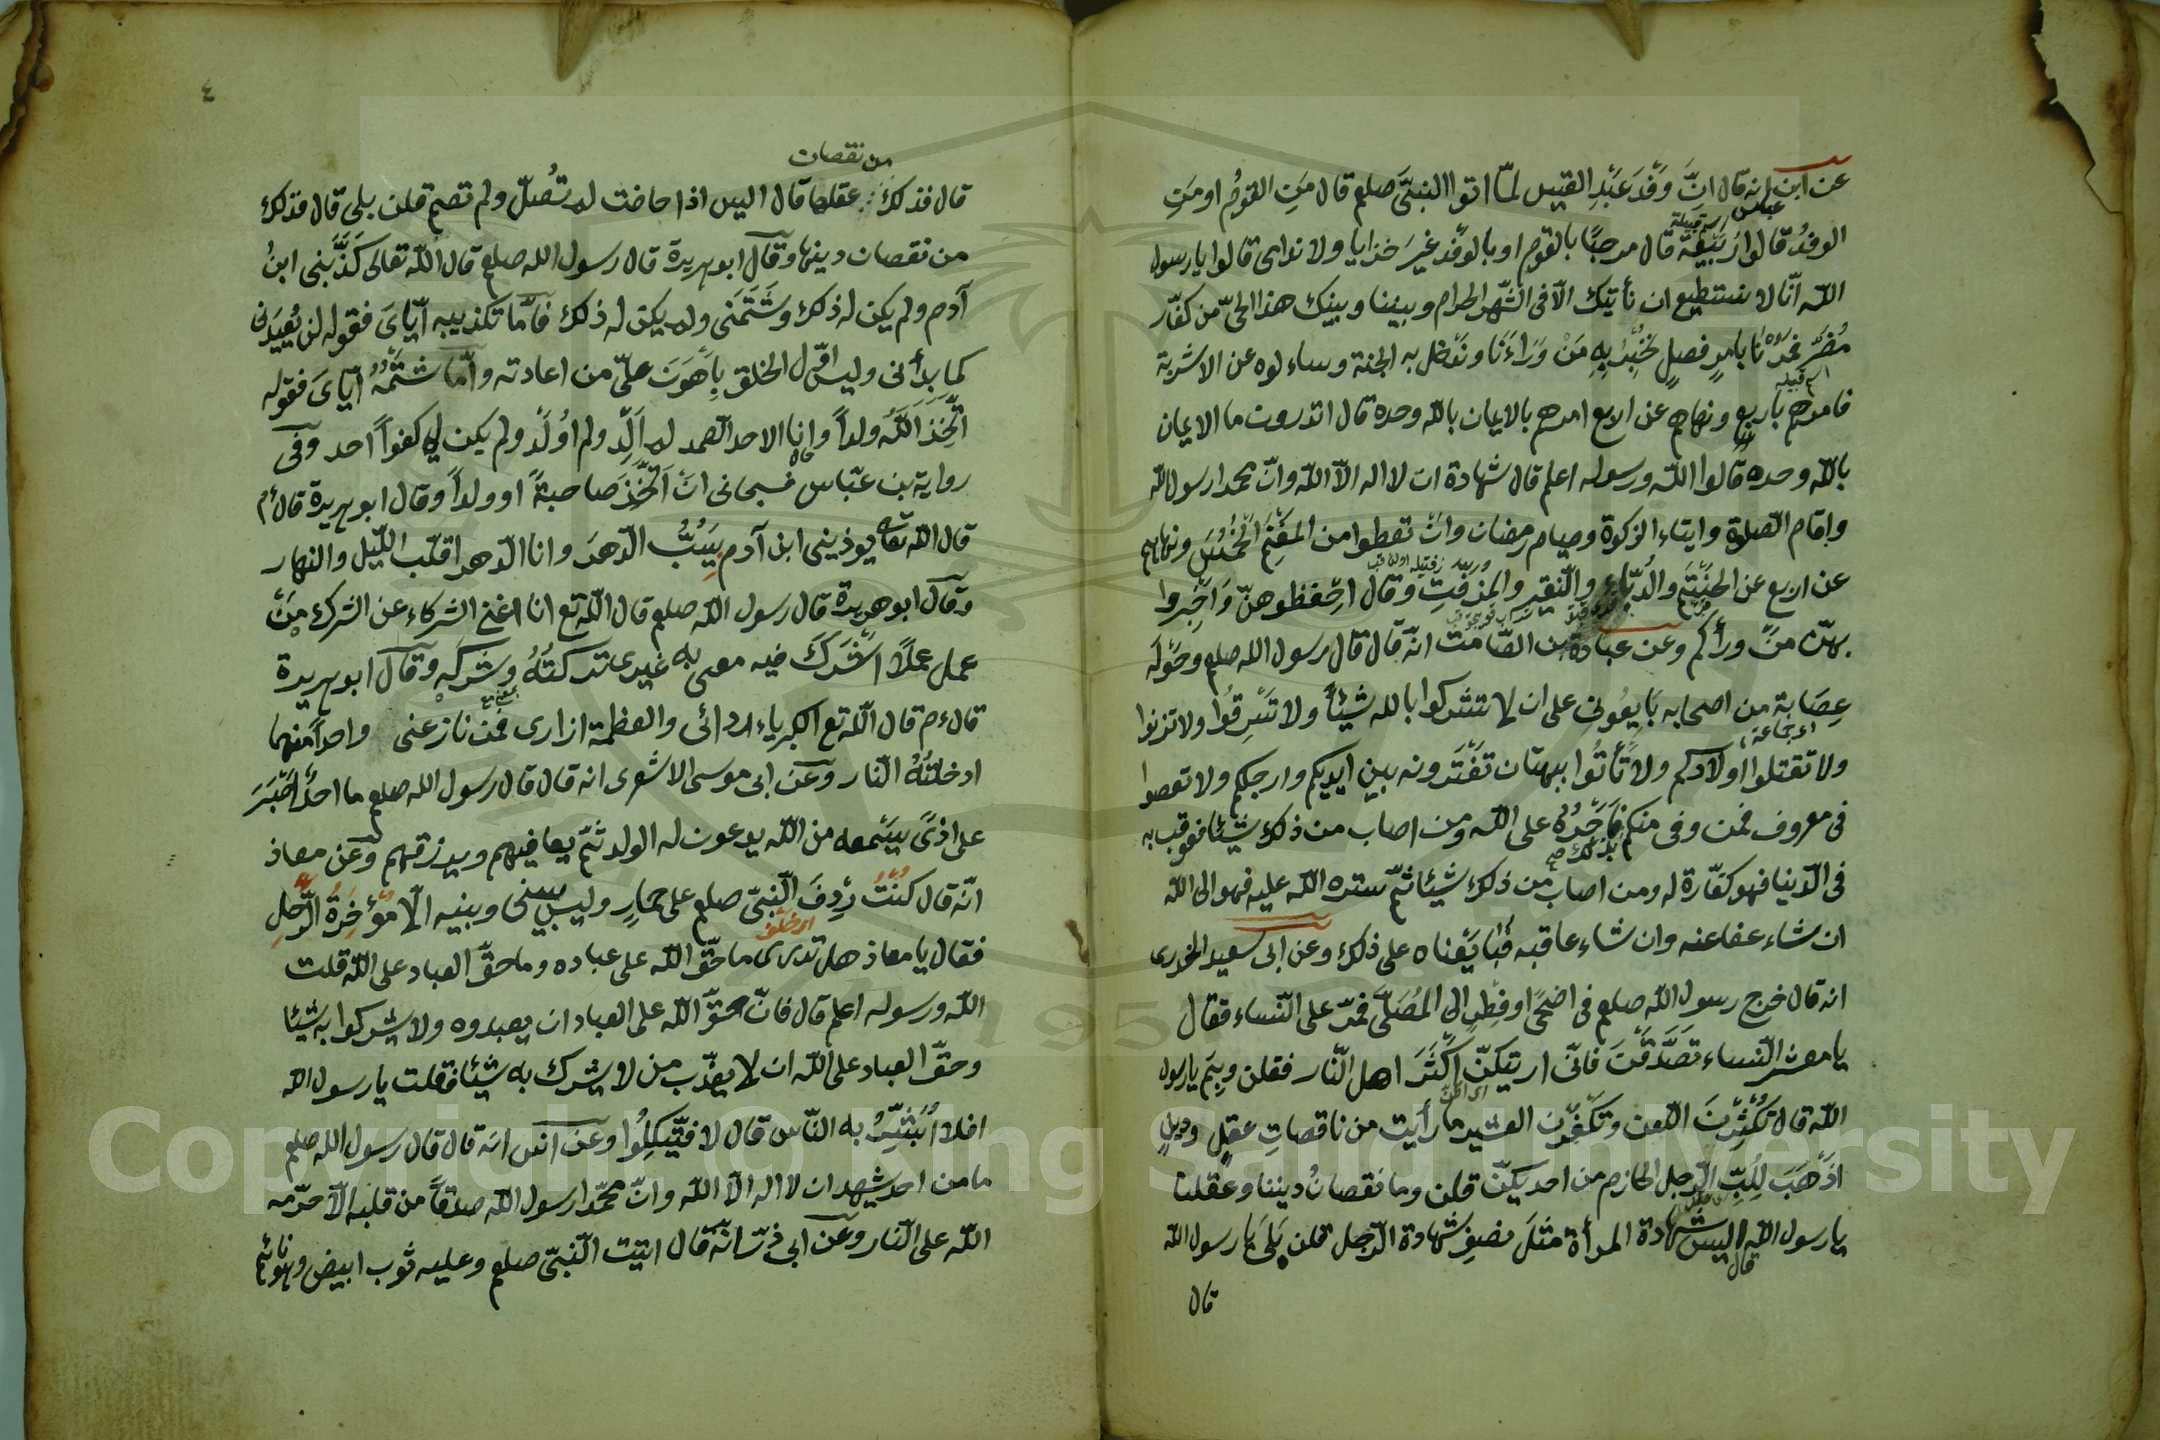 عن ابن عباس انه قال انّ وَفْدَ عَبْدِ القيس لمّا اتوا النبىَّ صلعم قال مَنِ القومُ او مَنِ
الوفدُ قالوا رَبيْعَةُ قال مرحبًا بالقوم او بالوفْد غيرَ خزايا ولا نداى قالوا يا رسول
اللّه انّا لا نستطيع ان نأتيك الّا فى الشّهر الحرام وبيننا وبينك هذا الحىّ من كفّار
مُضَر فمُرْنا بامرٍ فصلٍ نُخْبِرُ بِهِ مَنْ وَرَاءَنَا وندْخل به الجنة وساءلوه عن الاشربة
فامرهم باربع ونهاهم عن اربع امرهم بالايمان باللّه وحده قال اتدرون ما الايمان
باللّه وحده قالوا اللّه ورسوله اعلم قال شهادة ان لا اله الّا اللّه وانّ محمدا رسول اللّه
واقام الصلوة وايتاء الزكوة وصيام رمضان وانْ تعطوا من المغْنَمِ الخُمُسَ ونهاهم
عن اربع عن الحَنْتَم والدُّبّاءِ والنّقير والمزفّتِ وقال احْفظوهنّ وَاَخْبِروا
بهنّ مَنْ ورأكم وعن عبادة بن الصّامت انّه قال قال رسول الله صلعم وحَوْلَه
عِصَابة من اصحابه بَايِعُونى على ان لا تشركوا بالله شيئًا ولا تَسْرِقُوا ولا تزنوا
ولا تقتلوا اولادكم ولا تأتُوا ببهتان تَفْتَرونه بين ايديكم وارجلكم ولا تعصوا
فى معروف فمن وفى منكم فاَجْرُهُ على اللّه ومن اصاب من ذلك شيْئا فعوقب به
فى الدّنيا فهو كفّارة له ومن اصاب من ذلك شيئا ثمّ ستره اللّه عليه فهو الى اللّه
ان شاء عفا عنه وان شاء عاقبه فَبايَعْناه على ذلك وعن ابى سعيد الخدرى
انه قال خرج رسول اللّه صلعم فى اضحًى او فِطْرٍ الى المُصَلَّى فمرّ على النّساء فقال
يا معشر النّساء تَصَدَّقْنَ فانّى اريتكنّ اكْثَرَ اهل النّار فقلن وبِمَ يا رسول
اللّه قال تُكْثِرْنَ اللّعن وتَكْفُرْن العشير ما رأيت من ناقصاتِ عقلٍ ودينٍ
اذْهَبَ لِلُبِّ الرّجل الحازم من احديكنّ قلن وما نقصانُ ديننا وعقلنا
يا رسول اللّه قال اليس شهادة المرأة مثلَ نصفِ شهادة الرّجل قلن بَلَى يا رسول اللّه
قال
٤
من نقصان
قال فذلك عقلها قال اليس اذا حاضت لم تُصلّ ولم تصم قلن بلى قال فذلك
من نقصان دينها وقال ابو هريرة قال رسول الله صلعم قال اللّه تعالى كَذَّبنى ابنُ
آدم ولم يكن له ذلك وشَتَمَنى ولم يكن له ذلك فامّا تكذيبه ايّاىَ فقوله لن يُعِيدَنى
كما بدأنى وليس اوّل الخلق بِاَهْوَنَ علىّ من اعادته وامّا شَتْمُهُ ايّاىَ فقوله
اتّخذَ اللّهُ ولداً وانا الاحد الصمد لم اَلِدْ ولم اُولَدْ ولم يكن لى كفواً احد وفى
رواية بن عبّاس فسبحانى ان اَتّخِذَ صاحبةً او ولداً وقال ابو هريرة قال ءم
قال اللّه تعا يوذينى ابن آدم يَسُبُّ الدّهرَ وانا الدّهر اقلّب اللّيل والنهار
وقال ابو هريرة قال رسول اللّه صلعم قال اللّه تع انا اغنى الشركاء عن الشرك مَنْ
عمل عملًا اَشْرَكَ فيه معى به غيرى تركتُهُ وشركه وقال ابو هريرة
قال ءم قال اللّه تع الكبرياء ردائى والعظمة ازارى فمن نازعنى واحداً منهما
ادخلتُهُ النّار وعن ابى موسى الاشعرى انه قال قال رسول الله صلعم ما احدٌ اَصْبَرَ
على اذىً يسْمعه من اللّه يدعون له الولد ثمّ يعافيهم ويرزقهم وعن معاذ
انّه قال كُنْتُ رِدْفَ النّبىّ صلعم على حمارٍ وليس بينى وبينه الّا مُؤْخِرَةُ الرَّحلِ
فقال يا معاذ هل تدرى ما حقّ اللّه على عباده وما حقّ العباد على اللّه قلت
اللّه ورسوله اعلم قال فانّ حقّ اللّه على العباد ان يعبدوه ولا يشركوا به شيئا
وحقّ العباد على اللّه ان لا يعذّب من لا يشرك به شيئا فقلت يا رسول اللّه
افلا اُبَشِّرُ به النّاس قال لا فيتّكِلُوا وعن انس انه قال قال رسول الله صلعم
ما من احد يشهد ان لا اله الا اللّه وانّ محمّدا رسول اللّه صدقاً من قلبه الّا حرّمه
اللّه على النّار وعن ابى ذرّ انّه قال اتيت النّبىّ صلعم وعليه ثوب ابيض وهو نائم
Copyright © King Saud University
195